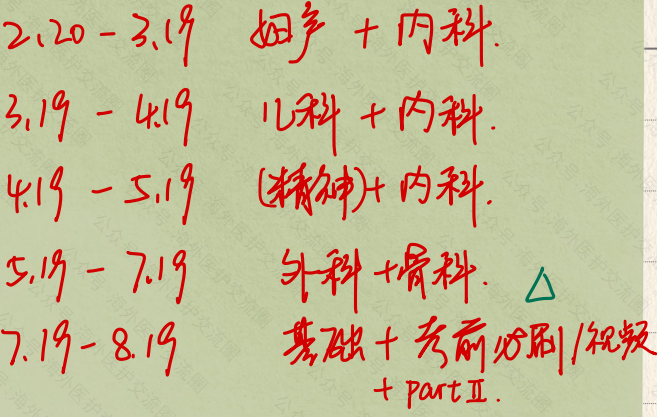 2.20 - 3.19 妇产 + 内科.
3.19 - 4.19 儿科 + 内科.
4.19 - 5.19 (精神) + 内科.
5.19 - 7.19 外科 + 骨科. △
7.19 - 8.19 基础 + 考前必刷/视频
+ part Ⅱ.